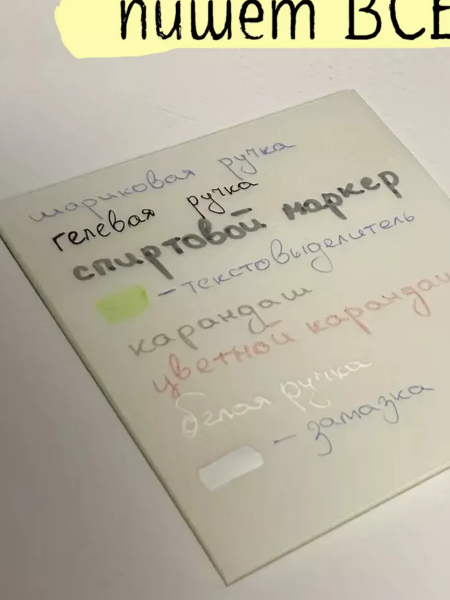 пишет ВСЕ
шариковая ручка
гелевая ручка
спиртовой маркер
- текстовыделитель
карандаш
цветной карандаш
белая ручка
- замазка